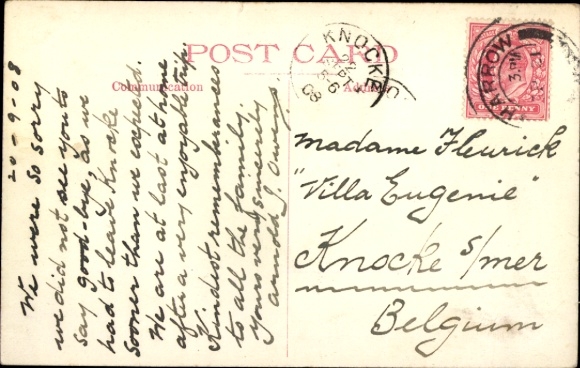 POST CARD
Communication
KNOCKE
22
SEPT
6
08
HARROW
ONE PENNY
20-9-08
We were so sorry
we did not see you to
say good-bye, as we
had to leave Knocke
sooner than we expected.
We are at last at home
after a very enjoyable trip.
Kindest remembrances
to all the family.
Yours very sincerely
Arnold J. Owen
Madame Fleurick
"Villa Eugenie"
Knocke s/mer
Belgium